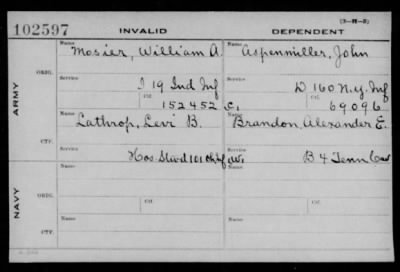 (3-H-5)
102597 INVALID DEPENDENT
Name Name
Mosier, William A. Aspenmiller, John
ORIG. Service Service
I 19 Ind Inf D 160 N.Y. Inf
ARMY
Ctf. Ctf.
152452 C. 69096
Name Name
Lathrop, Levi B. Brandon, Alexander E.
CTF. Service Service
Hos. Stwd 101 Oh Inf B 4 Tenn Cav
Name Name
NAVY
ORIG. Service Service
Ctf. Ctf.
Name Name
CTF. Service Service